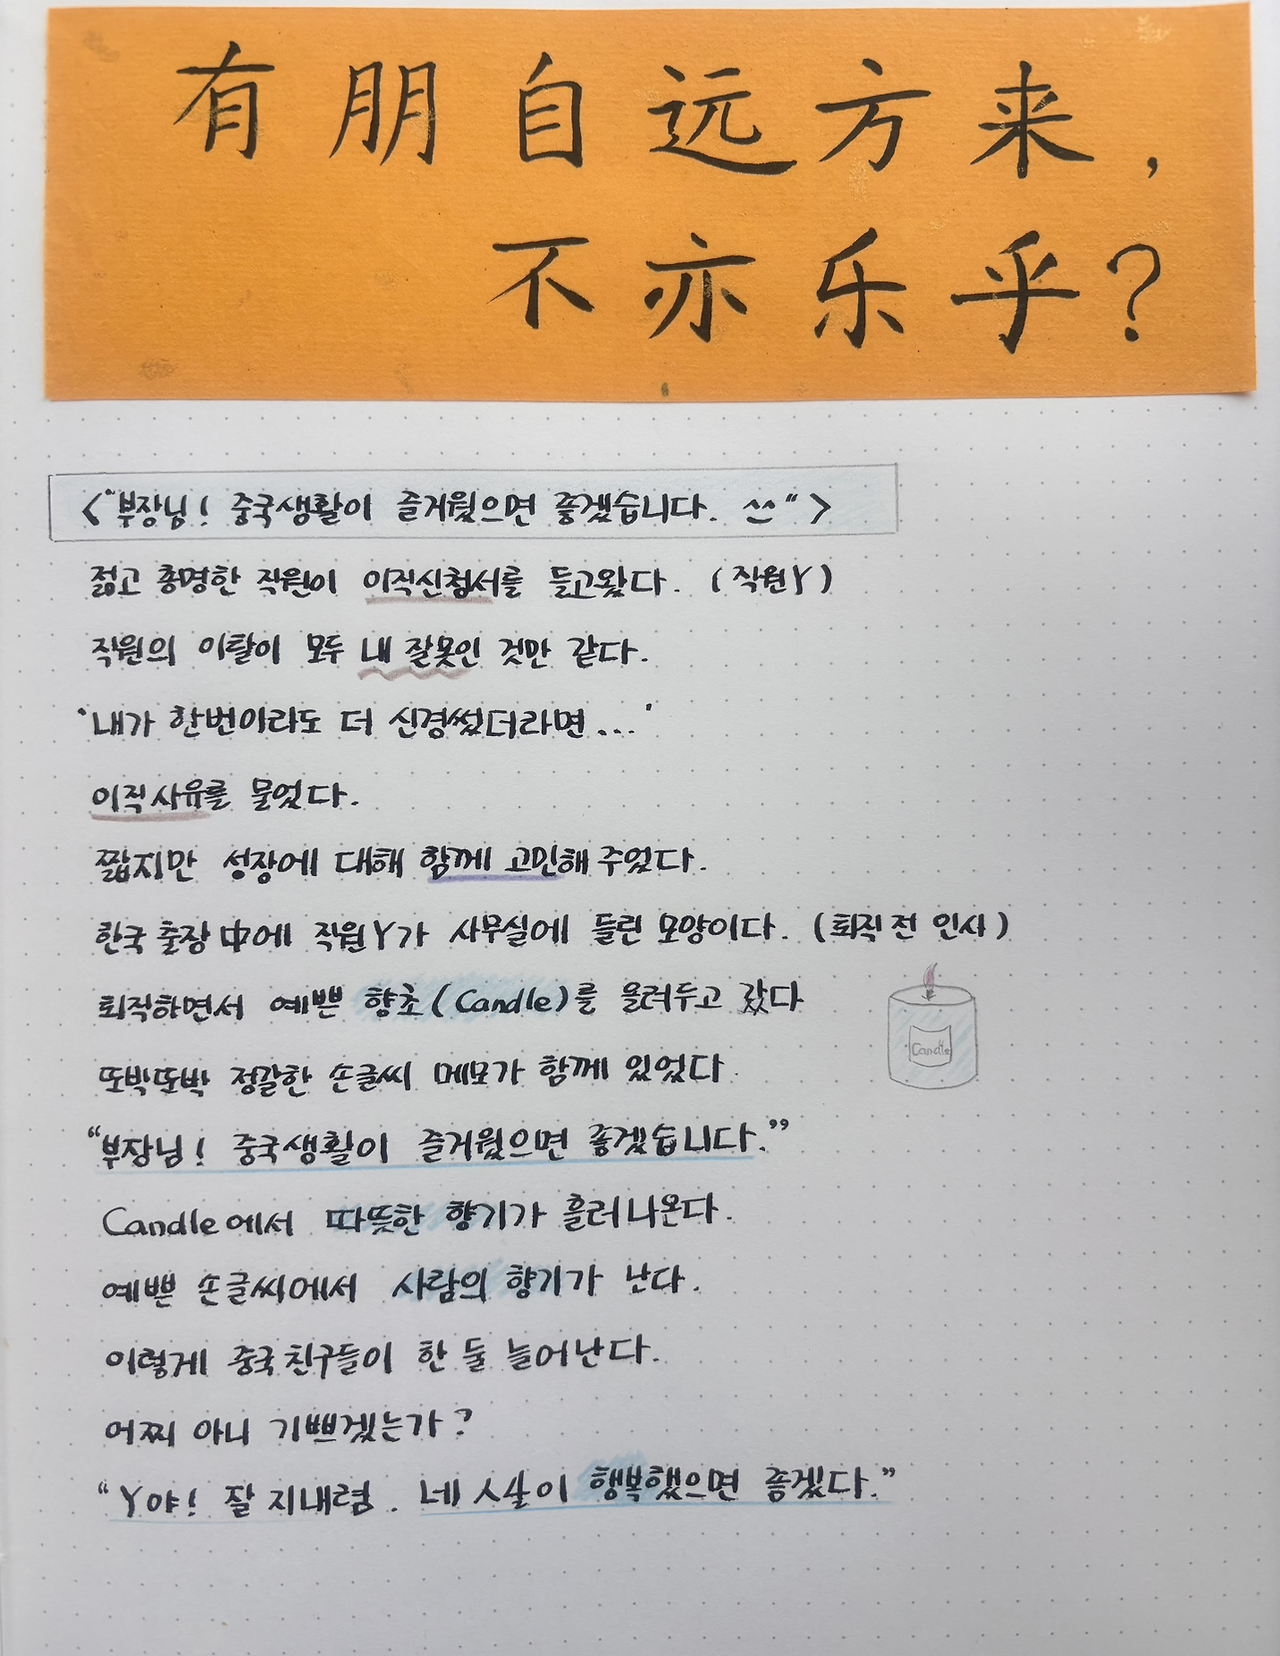 有朋自远方来,
不亦乐乎?
<"부장님! 중국생활이 즐거웠으면 좋겠습니다. ^^">
젊고 총명한 직원이 이직신청서를 들고왔다. (직원Y)
직원의 이탈이 모두 내 잘못인 것만 같다.
'내가 한번이라도 더 신경썼더라면...'
이직사유를 물었다.
짧지만 성장에 대해 함께 고민해 주었다.
한국 출장 中에 직원Y가 사무실에 들린 모양이다. (퇴직 전 인사)
퇴직하면서 예쁜 향초(Candle)를 올려두고 갔다
Candle
또박또박 정갈한 손글씨 메모가 함께 있었다
"부장님! 중국생활이 즐거웠으면 좋겠습니다."
Candle에서 따뜻한 향기가 흘러나온다.
예쁜 손글씨에서 사람의 향기가 난다.
이렇게 중국친구들이 한 둘 늘어난다.
어찌 아니 기쁘겠는가?
"Y야! 잘 지내렴. 네 人生이 행복했으면 좋겠다."